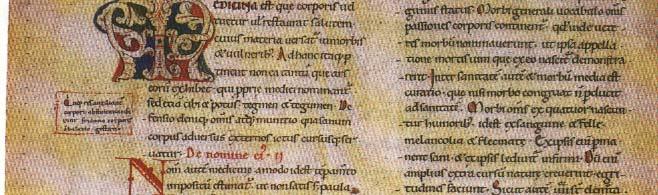 MEDICINA est que corporis ud
tuetur ul restaurat salutem
cuius materia uersat in morbis
& uulnerib;. Ad hanc itaq; p
tinent non ea tantu que ars
eoru exhibet qui pprie medici nominant
sed etia cibos & potus. tegmen & tegumen. De
fensio deniq; omis atq; munitio qua sanum
corpus aduersus externos ictus cursusq; ser
uatur. De nomine ei'. ii
Nom aute medicine a modo idest tepamto
impositu estimat. ut non satis si. paula
status. Morbi generali uocabulo oms
passiones corporis continent. qd uide uete
res morbu nominauerunt. ut ipsa appella
tione mortis uim que ex eo nascit demonstra
rent. Inter sanitate aute & morbu media est
curatio. que nisi morbo congruat n pducit
ad sanitate. Morbi oms ex quatuor nascun
tur humorib'. idest ex sanguine & felle.
melancolia & flecmate. Ex ipsis eni
nent sani. & ex ipsis ledunt infirmi. Du eni
amplius extra cursu nature creuerint. egri
tudines faciunt. Sicut aute sunt